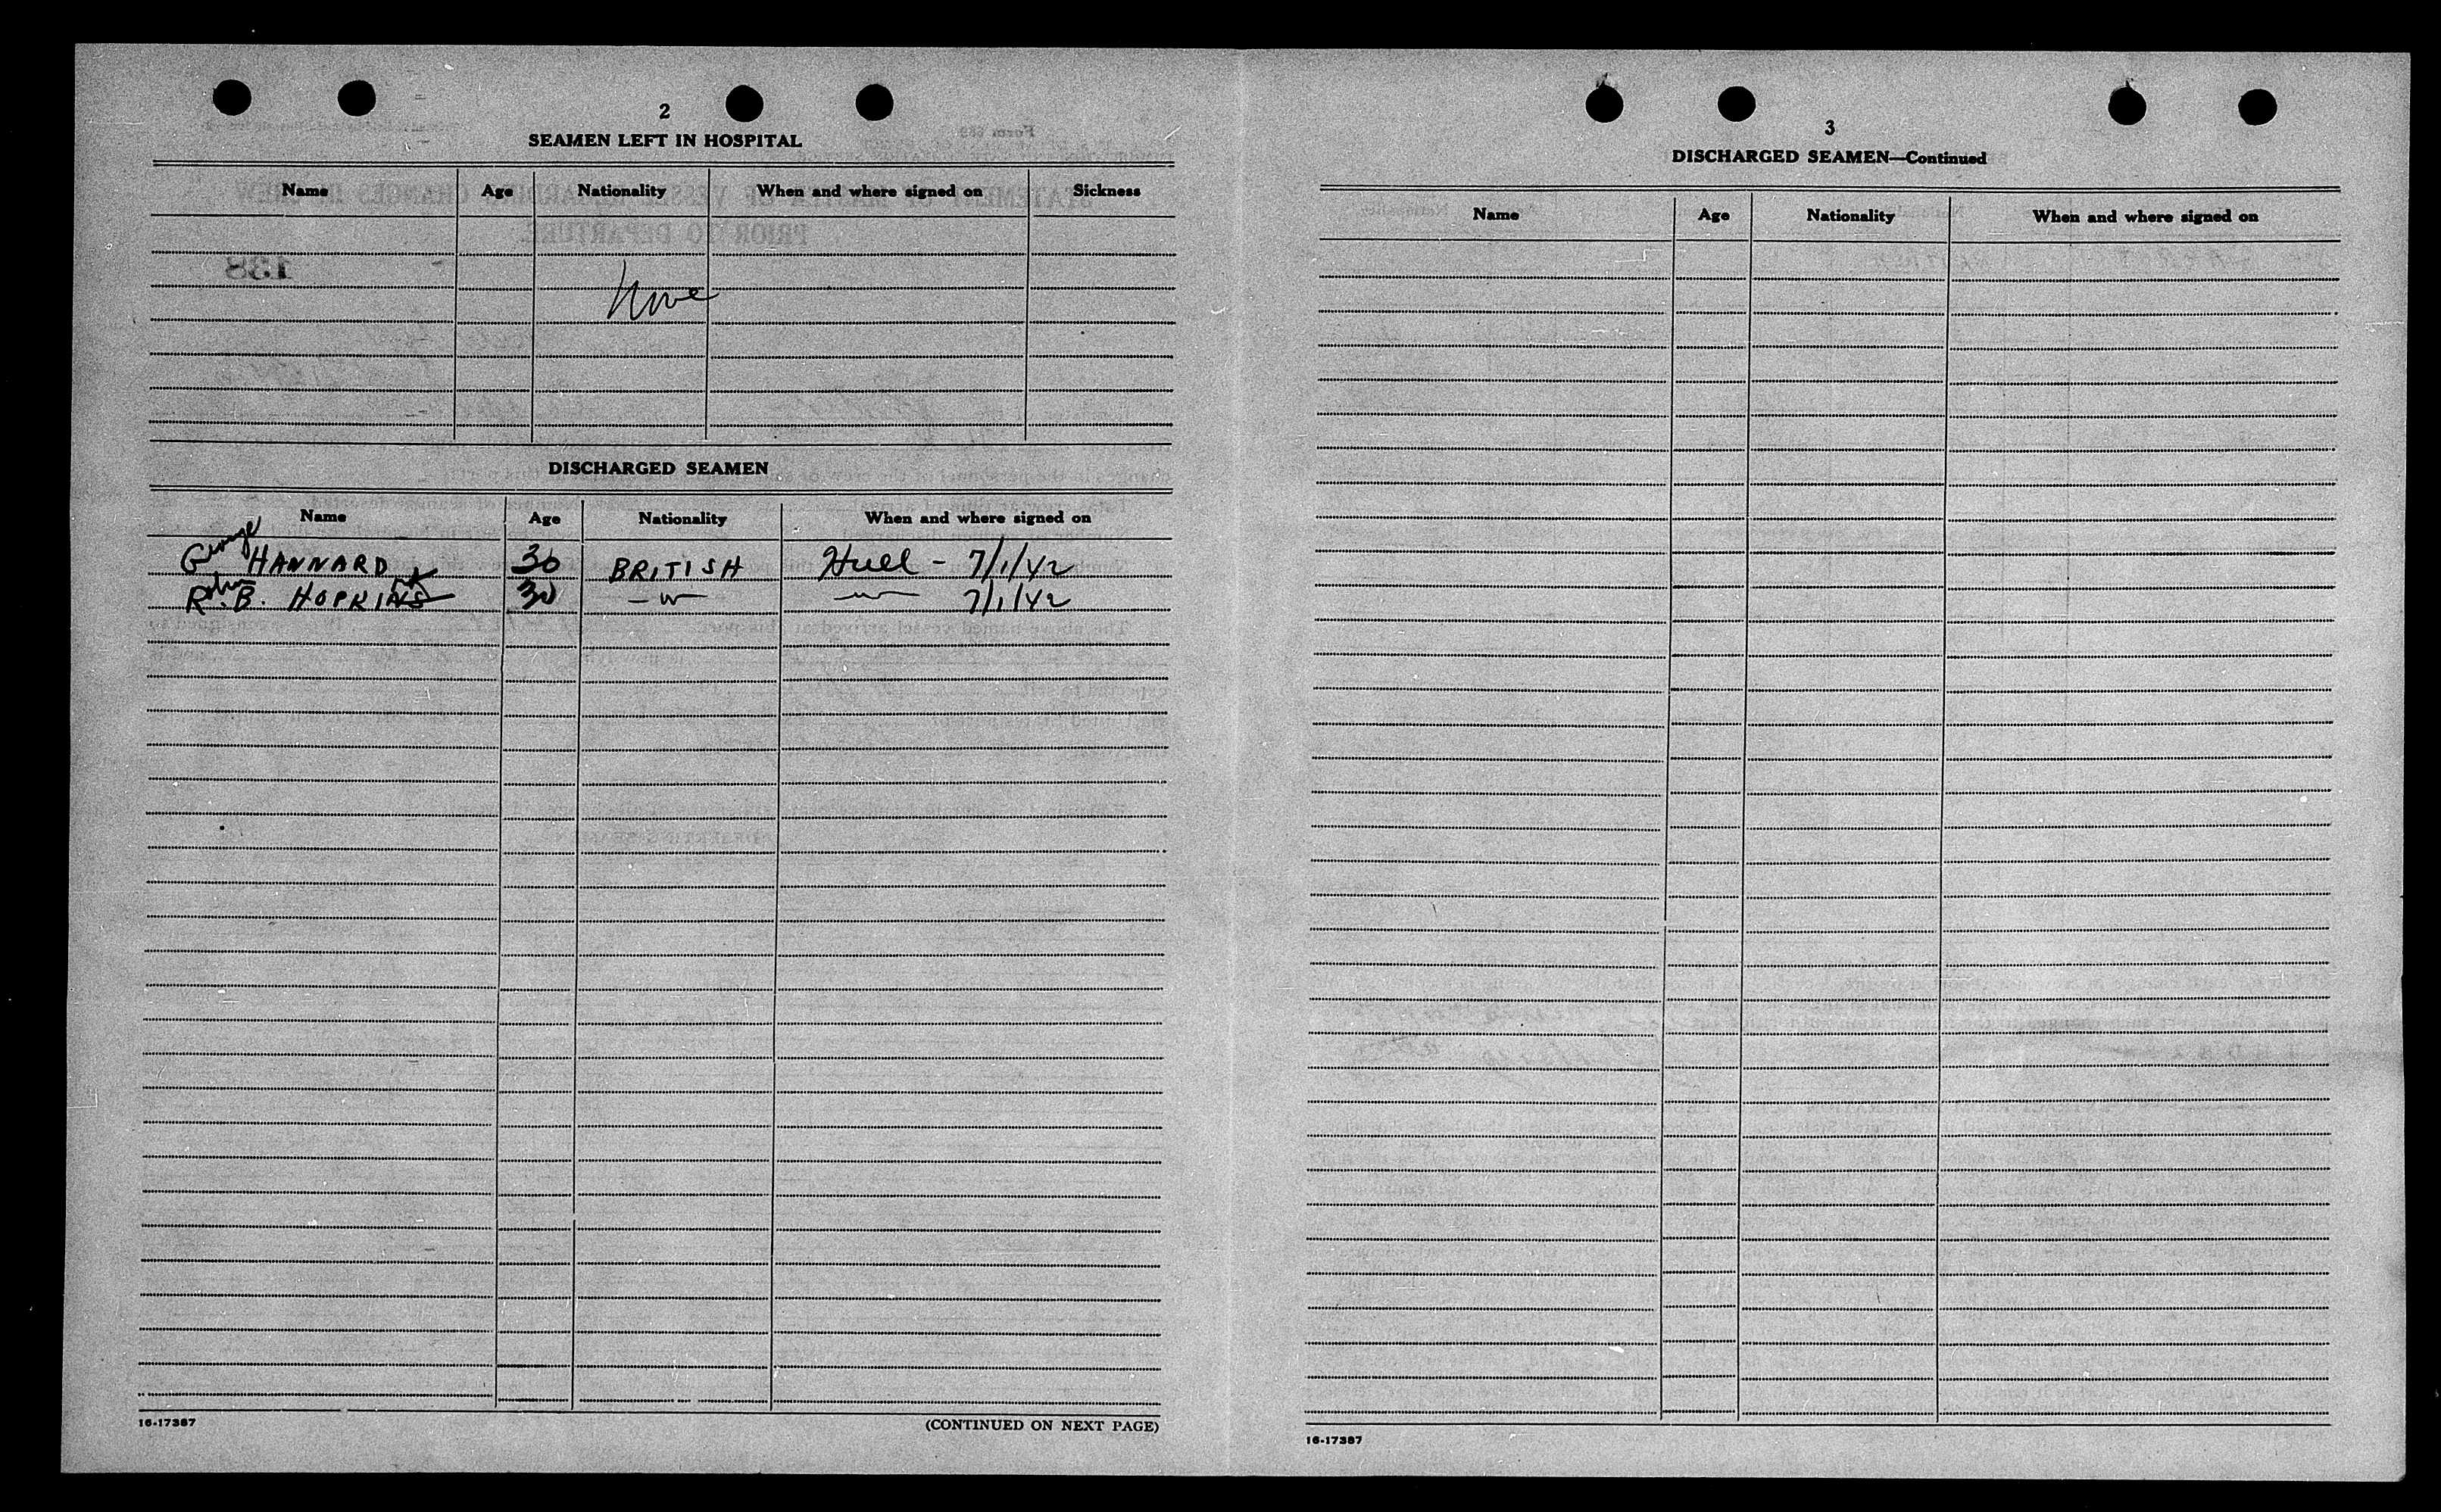 2
SEAMEN LEFT IN HOSPITAL
Name Age Nationality When and where signed on Sickness
None
DISCHARGED SEAMEN
Name Age Nationality When and where signed on
George HANNARD 36 BRITISH Hull - 7/1/42
B. HOPKINS 30 — " — — " — 7/1/42
16-17387
(CONTINUED ON NEXT PAGE)
3
DISCHARGED SEAMEN—Continued
Name Age Nationality When and where signed on
16-17387